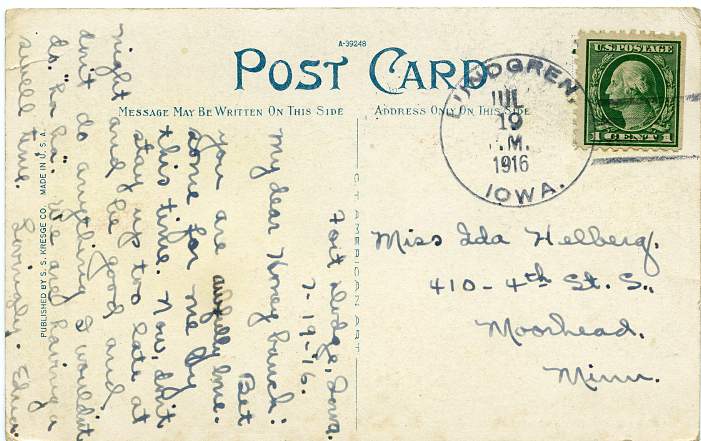 A-39248
POST CARD
MESSAGE MAY BE WRITTEN ON THIS SIDE
ADDRESS ONLY ON THIS SIDE
LINDGREN,
JUL
19
.M.
1916
IOWA.
U.S. POSTAGE
1 CENT 1
Miss Ida Helberg.
410-4th St. S.,
Moorhead.
Minn.
Fort Dodge, Iowa.
7-19-'16.
My dear Honey bunch:
Bet
you are awfully lone-
some for me by
this time. Now, don't
stay up too late at
night and be good and
don't do anything I wouldn't
do. "Ha Ha". We are having a
swell time. Lovingly. Edna.
C.T. AMERICAN ART
PUBLISHED BY S. S. KRESGE CO. MADE IN U. S. A.